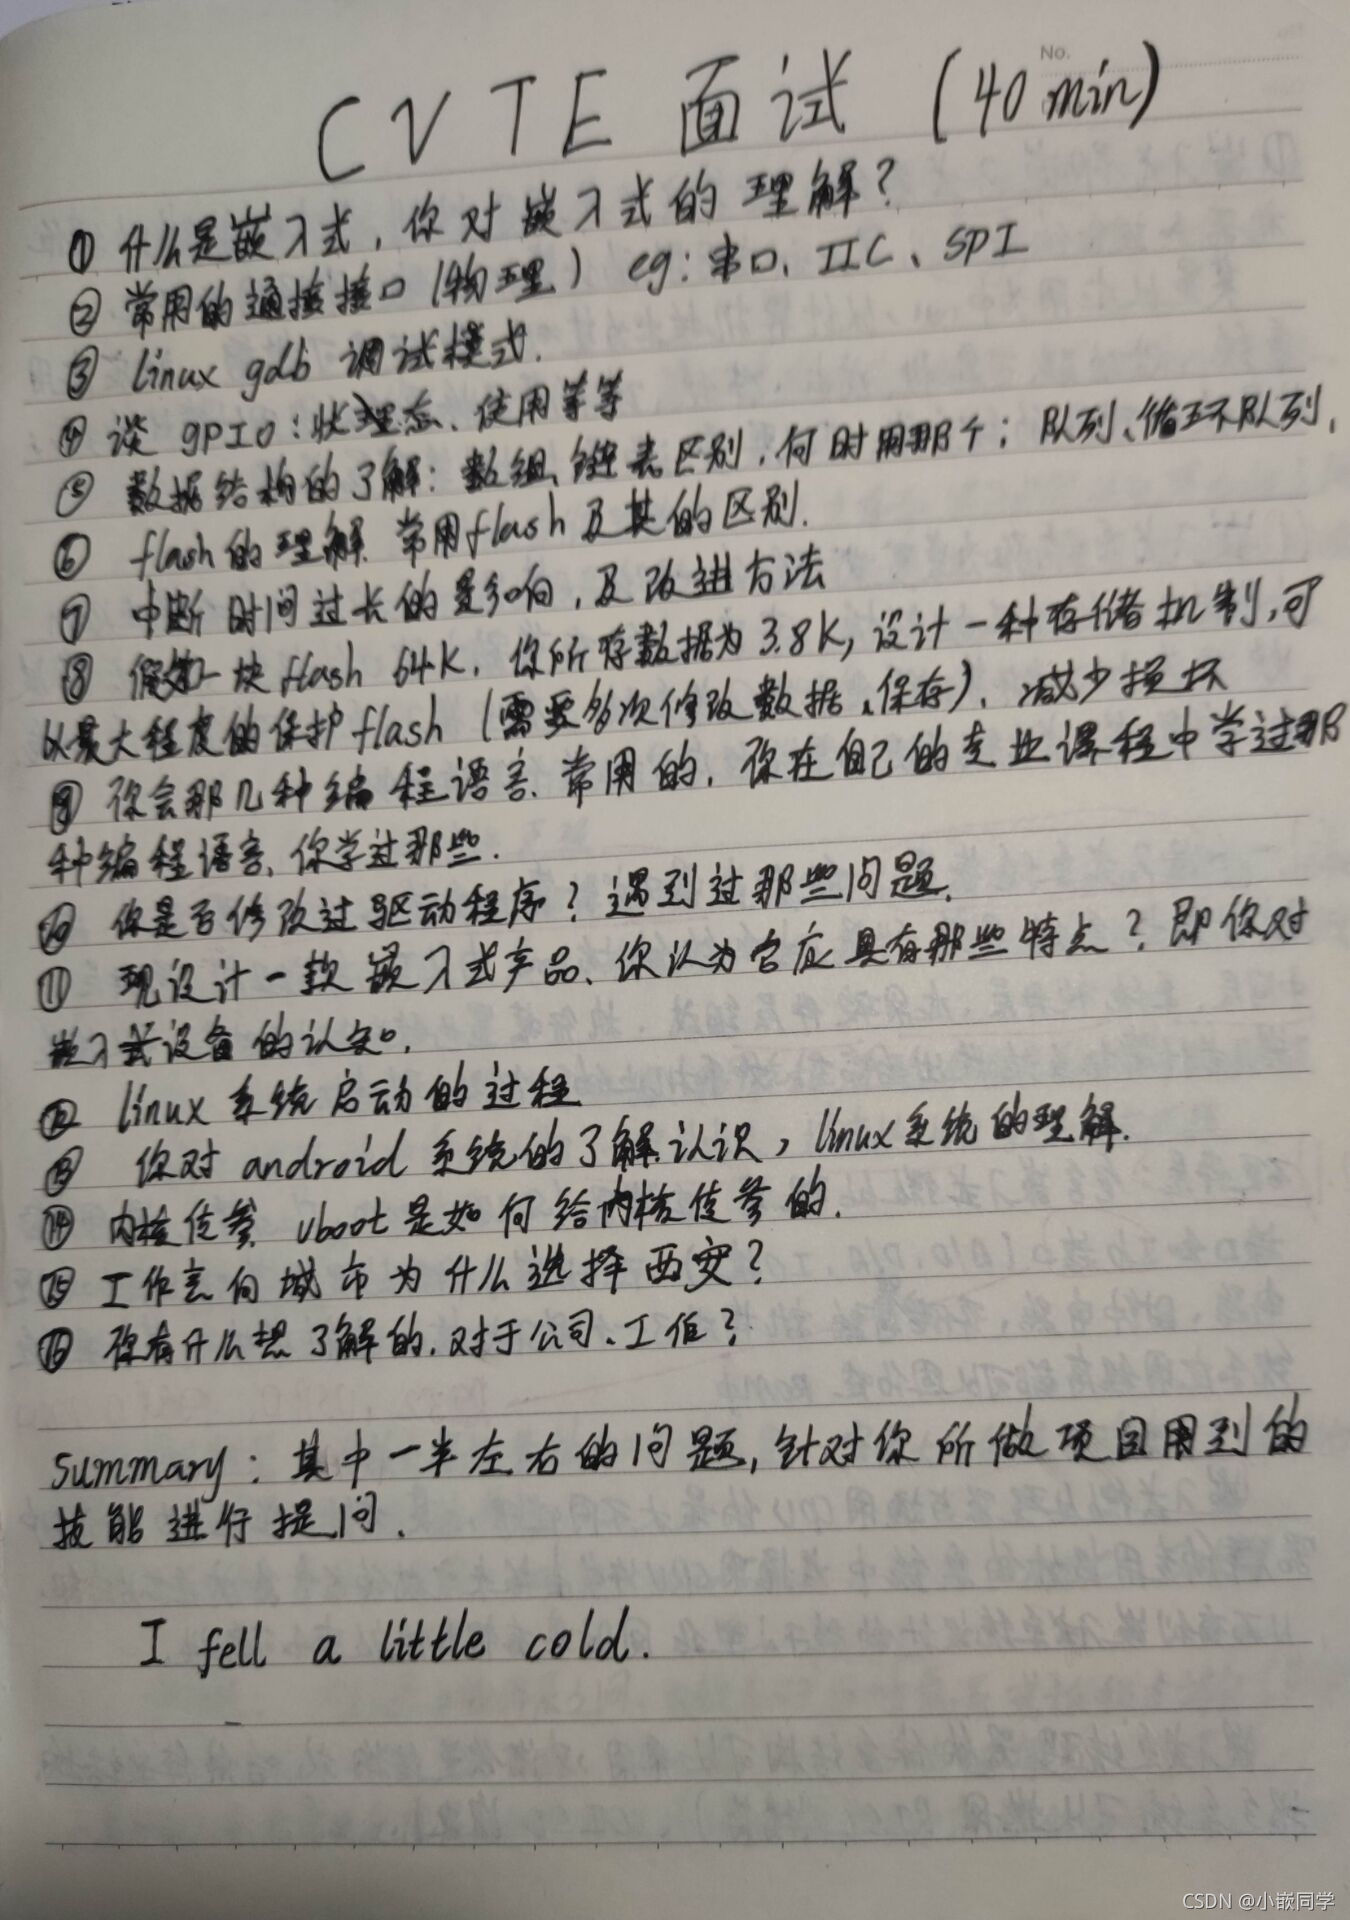 No.
CVTE 面试 (40 min)
① 什么是嵌入式,你对嵌入式的理解?
② 常用的通接接口(物理) eg:串口、IIC、SPI
③ linux gdb 调试模式.
④ 谈 gPIO:状态、使用等等
⑤ 数据结构的了解:数组、链表区别,何时用那个;队列、循环队列、
⑥ flash的理解. 常用flash及其的区别.
⑦ 中断时间过长的影响,及改进方法
⑧ 假如一块flash 64K,你所存数据为3.8K,设计一种存储机制,可
以最大程度的保护flash(需要多次修改数据、保存)、减少损坏
⑨ 你会那几种编程语言.常用的,你在自己的专业课程中学过那
种编程语言,你学过那些.
⑩ 你是否修改过驱动程序?遇到过那些问题.
⑪ 现设计一款嵌入式产品、你认为它应具有那些特点?即你对
嵌入式设备的认知.
⑫ linux系统启动的过程
⑬ 你对android系统的了解.认识,linux系统的理解.
⑭ 内核传参 uboot是如何给内核传参的.
⑮ 工作意向城市为什么选择西安?
⑯ 你有什么想了解的.对于公司、工作?
summary:其中一半左右的问题,针对你所做项目用到的
技能进行提问.
I fell a little cold.
CSDN @小嵌同学